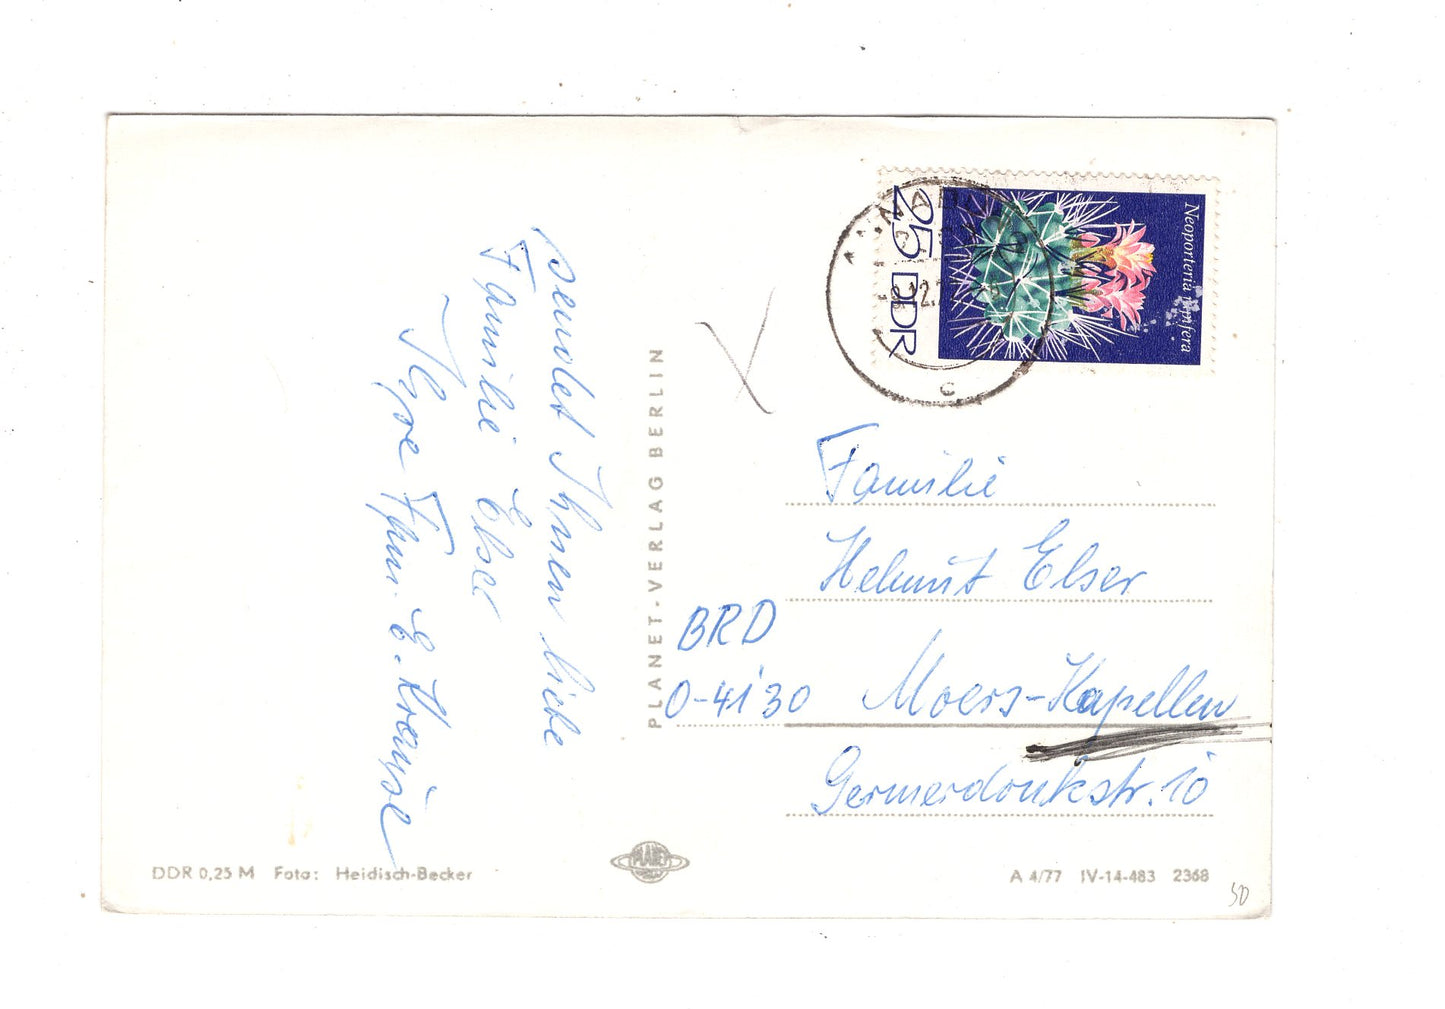 sendet Ihnen liebe
Familie Elser
Ihre Fam. E. Krause
PLANET-VERLAG BERLIN
25 DDR
Neoporteria
c
Familie
Helmut Elser
BRD
D-4130 Moers-Kapellen
Germerdonkstr. 10
DDR 0,25 M Foto: Heidisch-Becker
PLANET
A 4/77 IV-14-483 2368
50